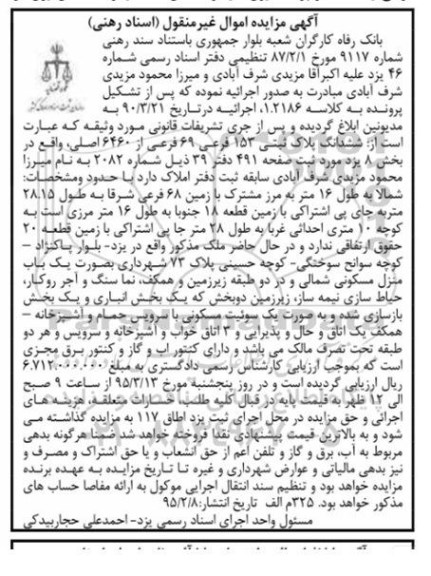 آگهی مزایده اموال غیرمنقول (اسناد رهنی)
بانک رفاه کارگران شعبه بلوار جمهوری باستناد سند رهنی
شماره ۹۱۱۷ مورخ ۸۷/۲/۱ تنظیمی دفتر اسناد رسمی شماره
۴۶ یزد علیه اکبرآقا مزیدی شرف آبادی و میرزا محمود مزیدی
شرف آبادی مبادرت به صدور اجرائیه نموده که پس از تشکیل
پرونده به کلاسه ۱.۲۱۸۶، اجرائیه در تاریخ ۹۰/۳/۲۱ به
مدیونین ابلاغ گردیده و پس از جری تشریفات قانونی مورد وثیقه که عبارت
است از: ششدانگ پلاک ثبتی ۱۵۳ فرعی ۶۹ فرعی از ۶۴۶۰ اصلی، واقع در
بخش ۸ یزد مورد ثبت صفحه ۴۹۱ دفتر ۳۹ ذیل شماره ۲۰۸۲ به نام میرزا
محمود مزیدی شرف آبادی سابقه ثبت دفتر املاک دارد با حدود ومشخصات:
شمالا به طول ۱۶ متر به مرز مشترک با زمین ۶۸ فرعی شرقا به طول ۲۸.۱۵
متربه جای پی اشتراکی با زمین قطعه ۱۸ جنوبا به طول ۱۶ متر مرزی است به
کوچه ۱۰ متری احداثی غربا به طول ۲۸ متر جا پی اشتراکی با زمین قطعه ۲۰
حقوق ارتفاقی ندارد و در حال حاضر ملک مذکور واقع در یزد- بلوار پاکنژاد –
کوچه سوانح سوختگی- کوچه حسینی پلاک ۷۳ شهرداری بصورت یک باب
منزل مسکونی شمالی و در دو طبقه زیرزمین و همکف، نما سنگ و آجر روکار،
حیاط سازی نیمه ساز، زیرزمین دوبخش که یک بخش انباری و یک بخش
بازسازی شده و به صورت یک سوئیت مسکونی با سرویس حمام و آشپزخانه –
همکف یک اتاق و حال و پذیرایی و ۳ اتاق خواب و آشپزخانه و سرویس و هر دو
طبقه تحت تصرف مالک می باشد و دارای کنتور آب و گاز و کنتور برق مجزی
است که بموجب ارزیابی کارشناس رسمی دادگستری به مبلغ ۶.۷۱۲.۰۰۰.۰۰۰
ریال ارزیابی گردیده است و در روز پنجشنبه مورخ ۹۵/۳/۱۳ از ساعت ۹ صبح
الی ۱۲ ظهر به قیمت پایه در قبال کلیه طلب و خسارات متعلقه، هزینه های
اجرائی و حق مزایده در محل اجرای ثبت یزد اطاق ۱۱۷ به مزایده گذاشته می
شود و به بالاترین قیمت پیشنهادی نقدا فروخته خواهد شد ضمنا هرگونه بدهی
مربوط به آب، برق و گاز و تلفن اعم از حق انشعاب و یا حق اشتراک و مصرف و
نیز بدهی مالیاتی و عوارض شهرداری و غیره تا تاریخ مزایده به عهده برنده
مزایده خواهد بود و تنظیم سند انتقال اجرایی موکول به ارائه مفاصا حساب های
مذکور خواهد بود. ۳۲۵م الف تاریخ انتشار:۹۵/۲/۸
مسئول واحد اجرای اسناد رسمی یزد- احمدعلی حجاربیدکی